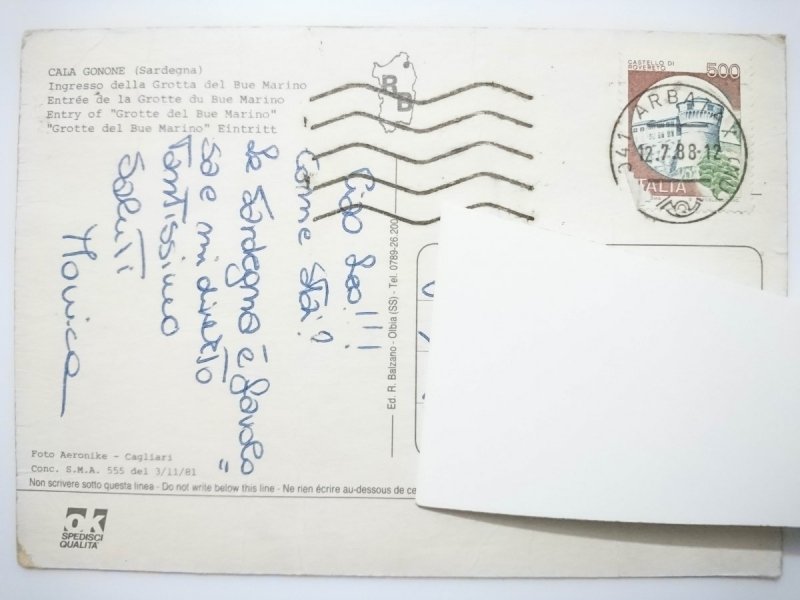 CALA GONONE (Sardegna)
Ingresso della Grotta del Bue Marino
Entrée de la Grotte du Bue Marino
Entry of "Grotte del Bue Marino"
"Grotte del Bue Marino" Eintritt
BB
CASTELLO DI
ROVERETO
500
ITALIA
041 ARBA
12.7.88-12
Ciao Leo!!!
Come stai?
La Sardegna è
sa e mi diverto
Tantissimo
Saluti
Monica
Ed. R. Balzano - Olbia (SS) - Tel. 0789-26.200
Foto Aeronike - Cagliari
Conc. S.M.A. 555 del 3/11/81
Non scrivere sotto questa linea - Do not write below this line - Ne rien écrire au-dessous de ce
ok
SPEDISCI
QUALITA'